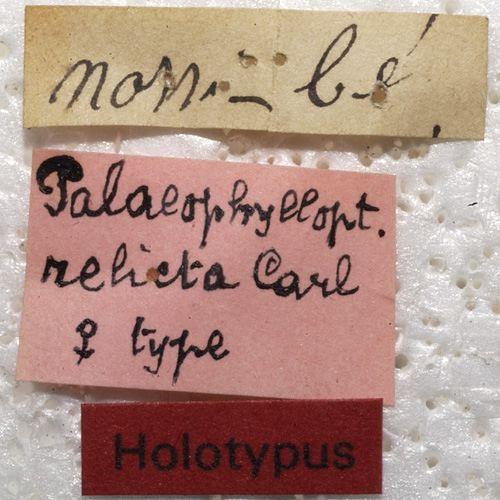 nossi-bé
Palaeophyllopt.
relicta Carl
♀ type
Holotypus